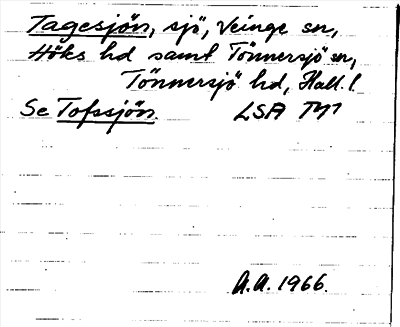 Tagesjön, sjö, Veinge sn,
Höks hd samt Tönnersjö sn,
Tönnersjö hd, Hall. l.
Se Tofssjön. LSA
A.A. 1966.